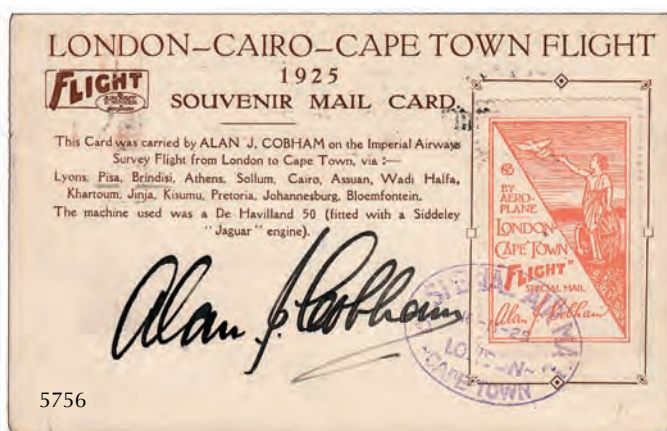 LONDON–CAIRO–CAPE TOWN FLIGHT
1925
FLIGHT
SOUVENIR MAIL CARD.
This Card was carried by ALAN J. COBHAM on the Imperial Airways
Survey Flight from London to Cape Town, via :—
Lyons, Pisa, Brindisi, Athens, Sollum, Cairo, Assuan, Wadi Halfa,
Khartoum, Jinja, Kisumu, Pretoria, Johannesburg, Bloemfontein.
The machine used was a De Havilland 50 (fitted with a Siddeley
"Jaguar" engine).
Alan J. Cobham
BY
AERO-
PLANE
LONDON
CAPE TOWN
"FLIGHT"
SPECIAL MAIL
Alan J. Cobham
AIR
CAPE TOWN
5756